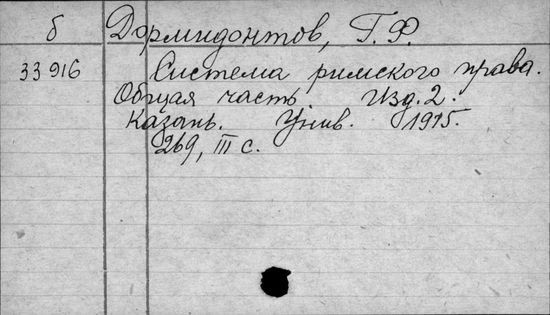 б Дормидонтов, Г. Ф.
33916 Система римского права.
Общая часть. Изд. 2.
Казань. Унив. 1915.
269, III с.